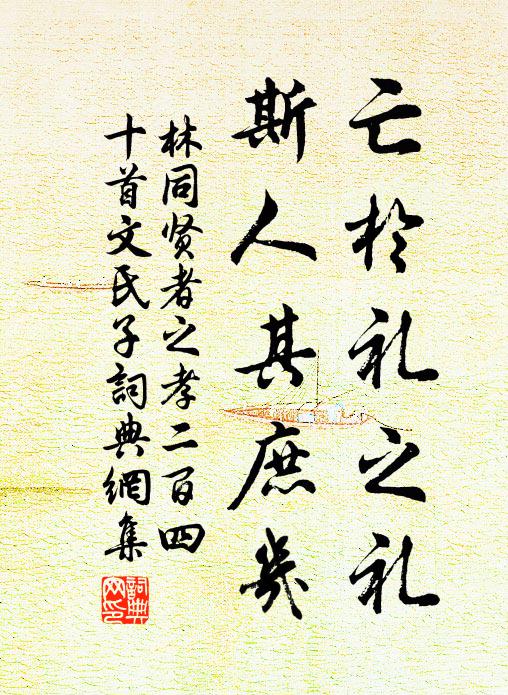 亡於礼之礼
斯人其庶幾
林同贤者之孝二百四
十首文氏子詞典網集
詞典网印